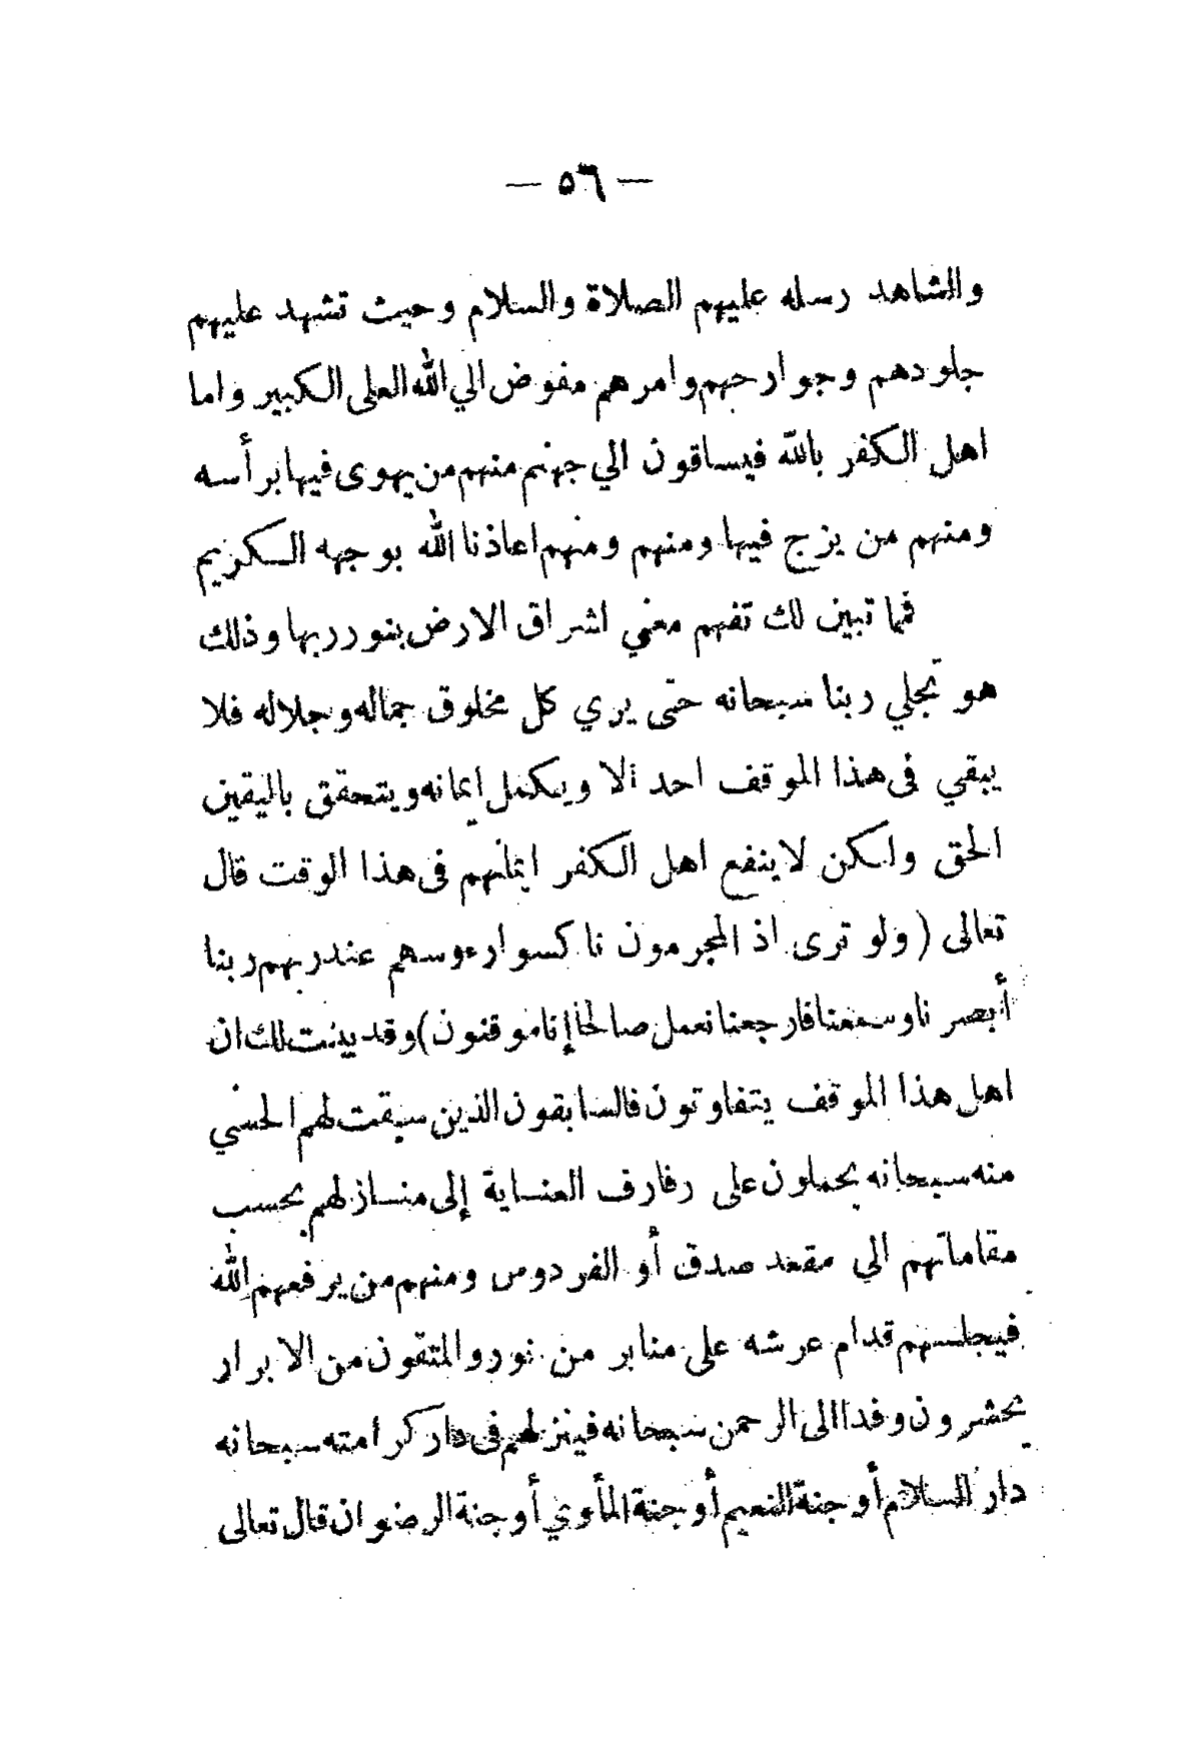 — ٥٦ —
والشاهد رسله عليهم الصلاة والسلام وحيث تشهد عليهم
جلودهم وجوارحهم وامرهم مفوض الي الله العلى الكبير واما
اهل الكفر بالله فيساقون الي جهنم منهم من يهوى فيها برأسه
ومنهم من يزج فيها ومنهم ومنهم اعاذنا الله بوجهه الكريم
فما تبين لك تفهم معني اشراق الارض بنور ربها وذلك
هو تجلي ربنا سبحانه حتى يري كل مخلوق جماله وجلاله فلا
يبقي فى هذا الموقف احد الا ويكمل ايمانه ويتحقق باليقين
الحق ولكن لا ينفع اهل الكفر ايمانهم فى هذا الوقت قال
تعالى ( ولو ترى اذ المجرمون ناكسوا رءوسهم عند ربهم ربنا
أبصرنا وسمعنا فارجعنا نعمل صالحا إنا موقنون) وقد بينت لك ان
اهل هذا الموقف يتفاوتون فالسابقون الذين سبقت لهم الحسني
منه سبحانه يحملون على رفارف العناية إلى منازلهم بحسب
مقاماتهم الي مقعد صدق أو الفردوس ومنهم من يرفعهم الله
فيجلسهم قدام عرشه على منابر من نور والمتقون من الابرار
يحشرون وفدا الى الرحمن سبحانه فينزلهم فى دار كرامته سبحانه
دار السلام أو جنة النعيم أو جنة المأوي أو جنة الرضوان قال تعالى